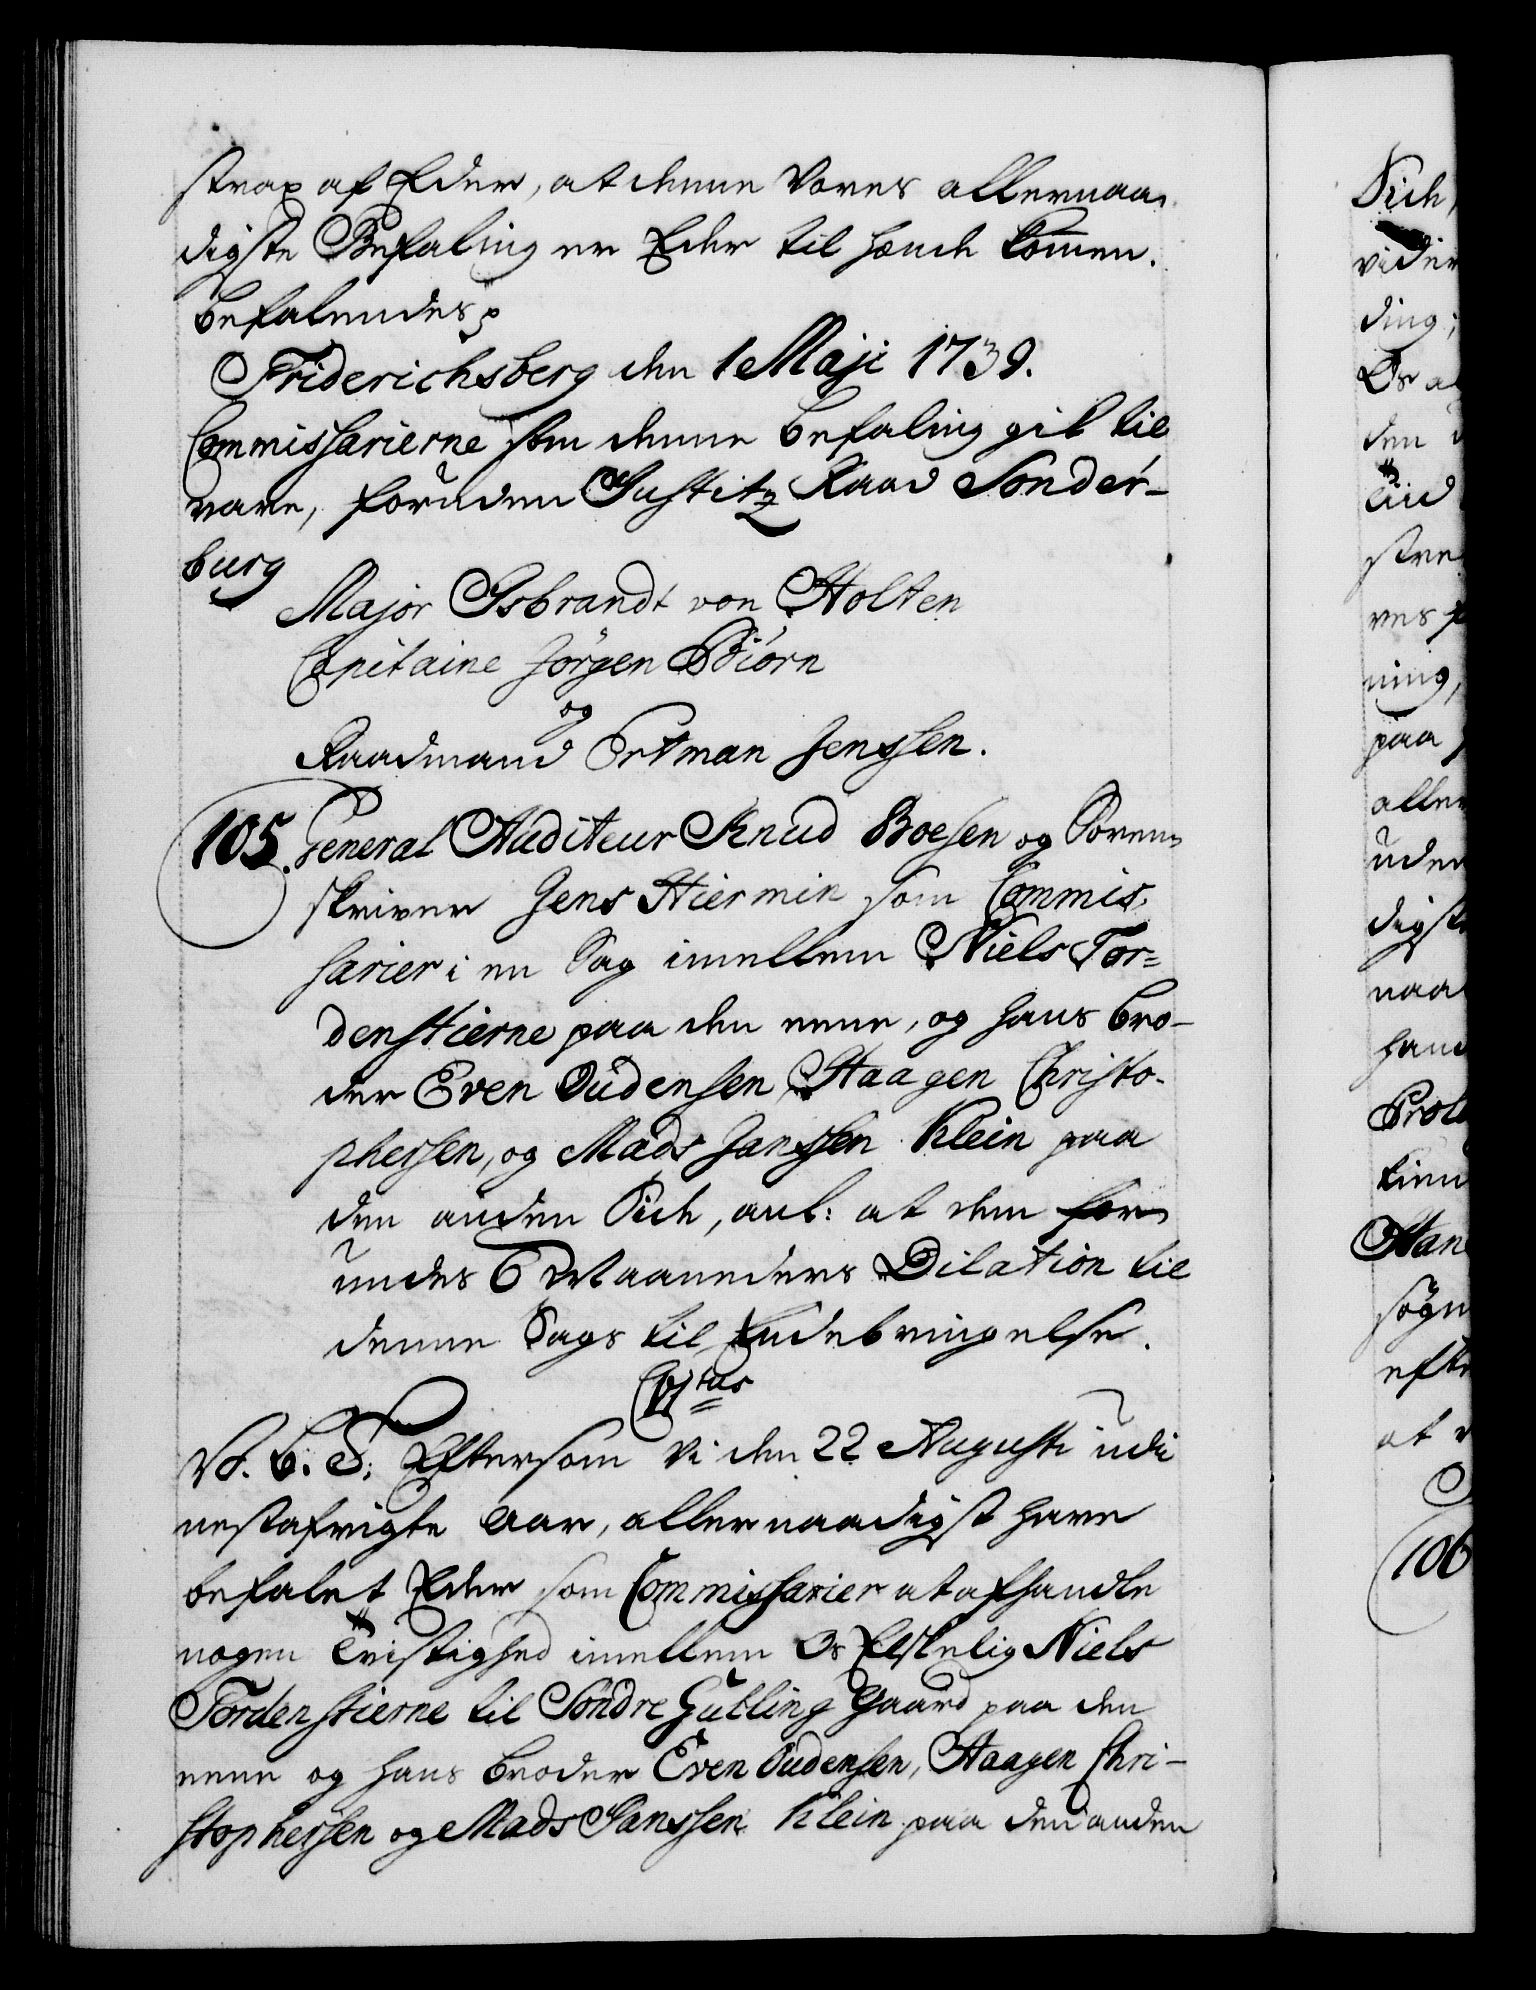 strax af Eder, at denne Vores allernaa-
digste Befaling er Eder til hænde kom̄en.
befalendes
Friderichsberg den 1 Maji 1739.
Commissarierne som denne befaling gik til
vare, foruden Justitz Raad Sonder-
burg
Major Isbrandt von Holten
Capitaine Jörgen Biörn
og
Raadmand Ortman Jenssen.
105. General Auditeur Knud Boesen og Soren-
skriver Jens Hiermin som Commis-
sarier i en Sag imellem Niels Tor-
denstierne paa den eene, og hans bro-
der Even Oudensen, Haagen Christo-
phersen, og Mads Janssen Klein paa
den anden Side, anl: at dem
undes 6 Maaneders Dilation til
denne Sags til Endebringelse.
V. G. T. Eftersom Vi den 22 Augusti udi
nestafvigte Aar, allernaadigst have
befalet Eder som Commissarier at afhandle
nogen Tvistighed imellem Os Elskelig Niels
Tordenstierne til Söndre Gutling Gaard paa den
eene og hans broder Even Oudensen, Haagen Chri-
stophersen og Mads Janssen Klein paa den anden
Side,
ding;
Os al
den
tiid
ning,
paa
aller
uden
digst
naa
efter
at
106